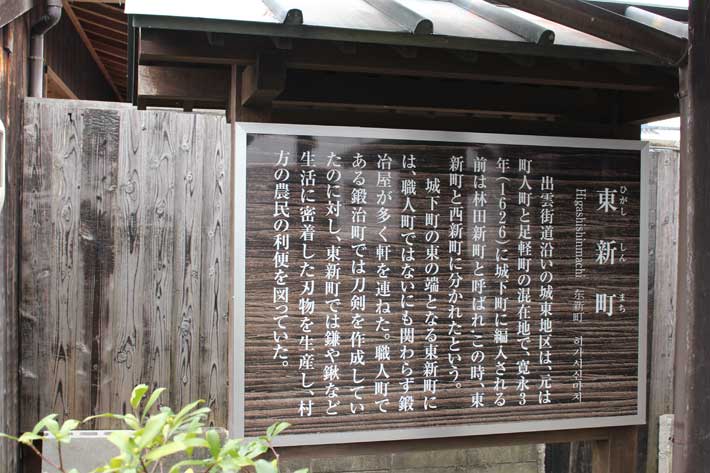 ひがし しん まち
東新町
Higashishinmachi 东新町 히가시신마치
出雲街道沿いの城東地区は、元は
町人町と足軽町の混在地で、寛永3
年(1626)に城下町に編入される
前は林田新町と呼ばれ、この時、東
新町と西新町に分かれたという。
城下町の東の端となる東新町に
は、職人町ではないにも関わらず鍛
冶屋が多く軒を連ねた。職人町で
ある鍛冶町では刀剣を作成してい
たのに対し、東新町では鎌や鍬など
生活に密着した刃物を生産し、村
方の農民の利便を図っていた。